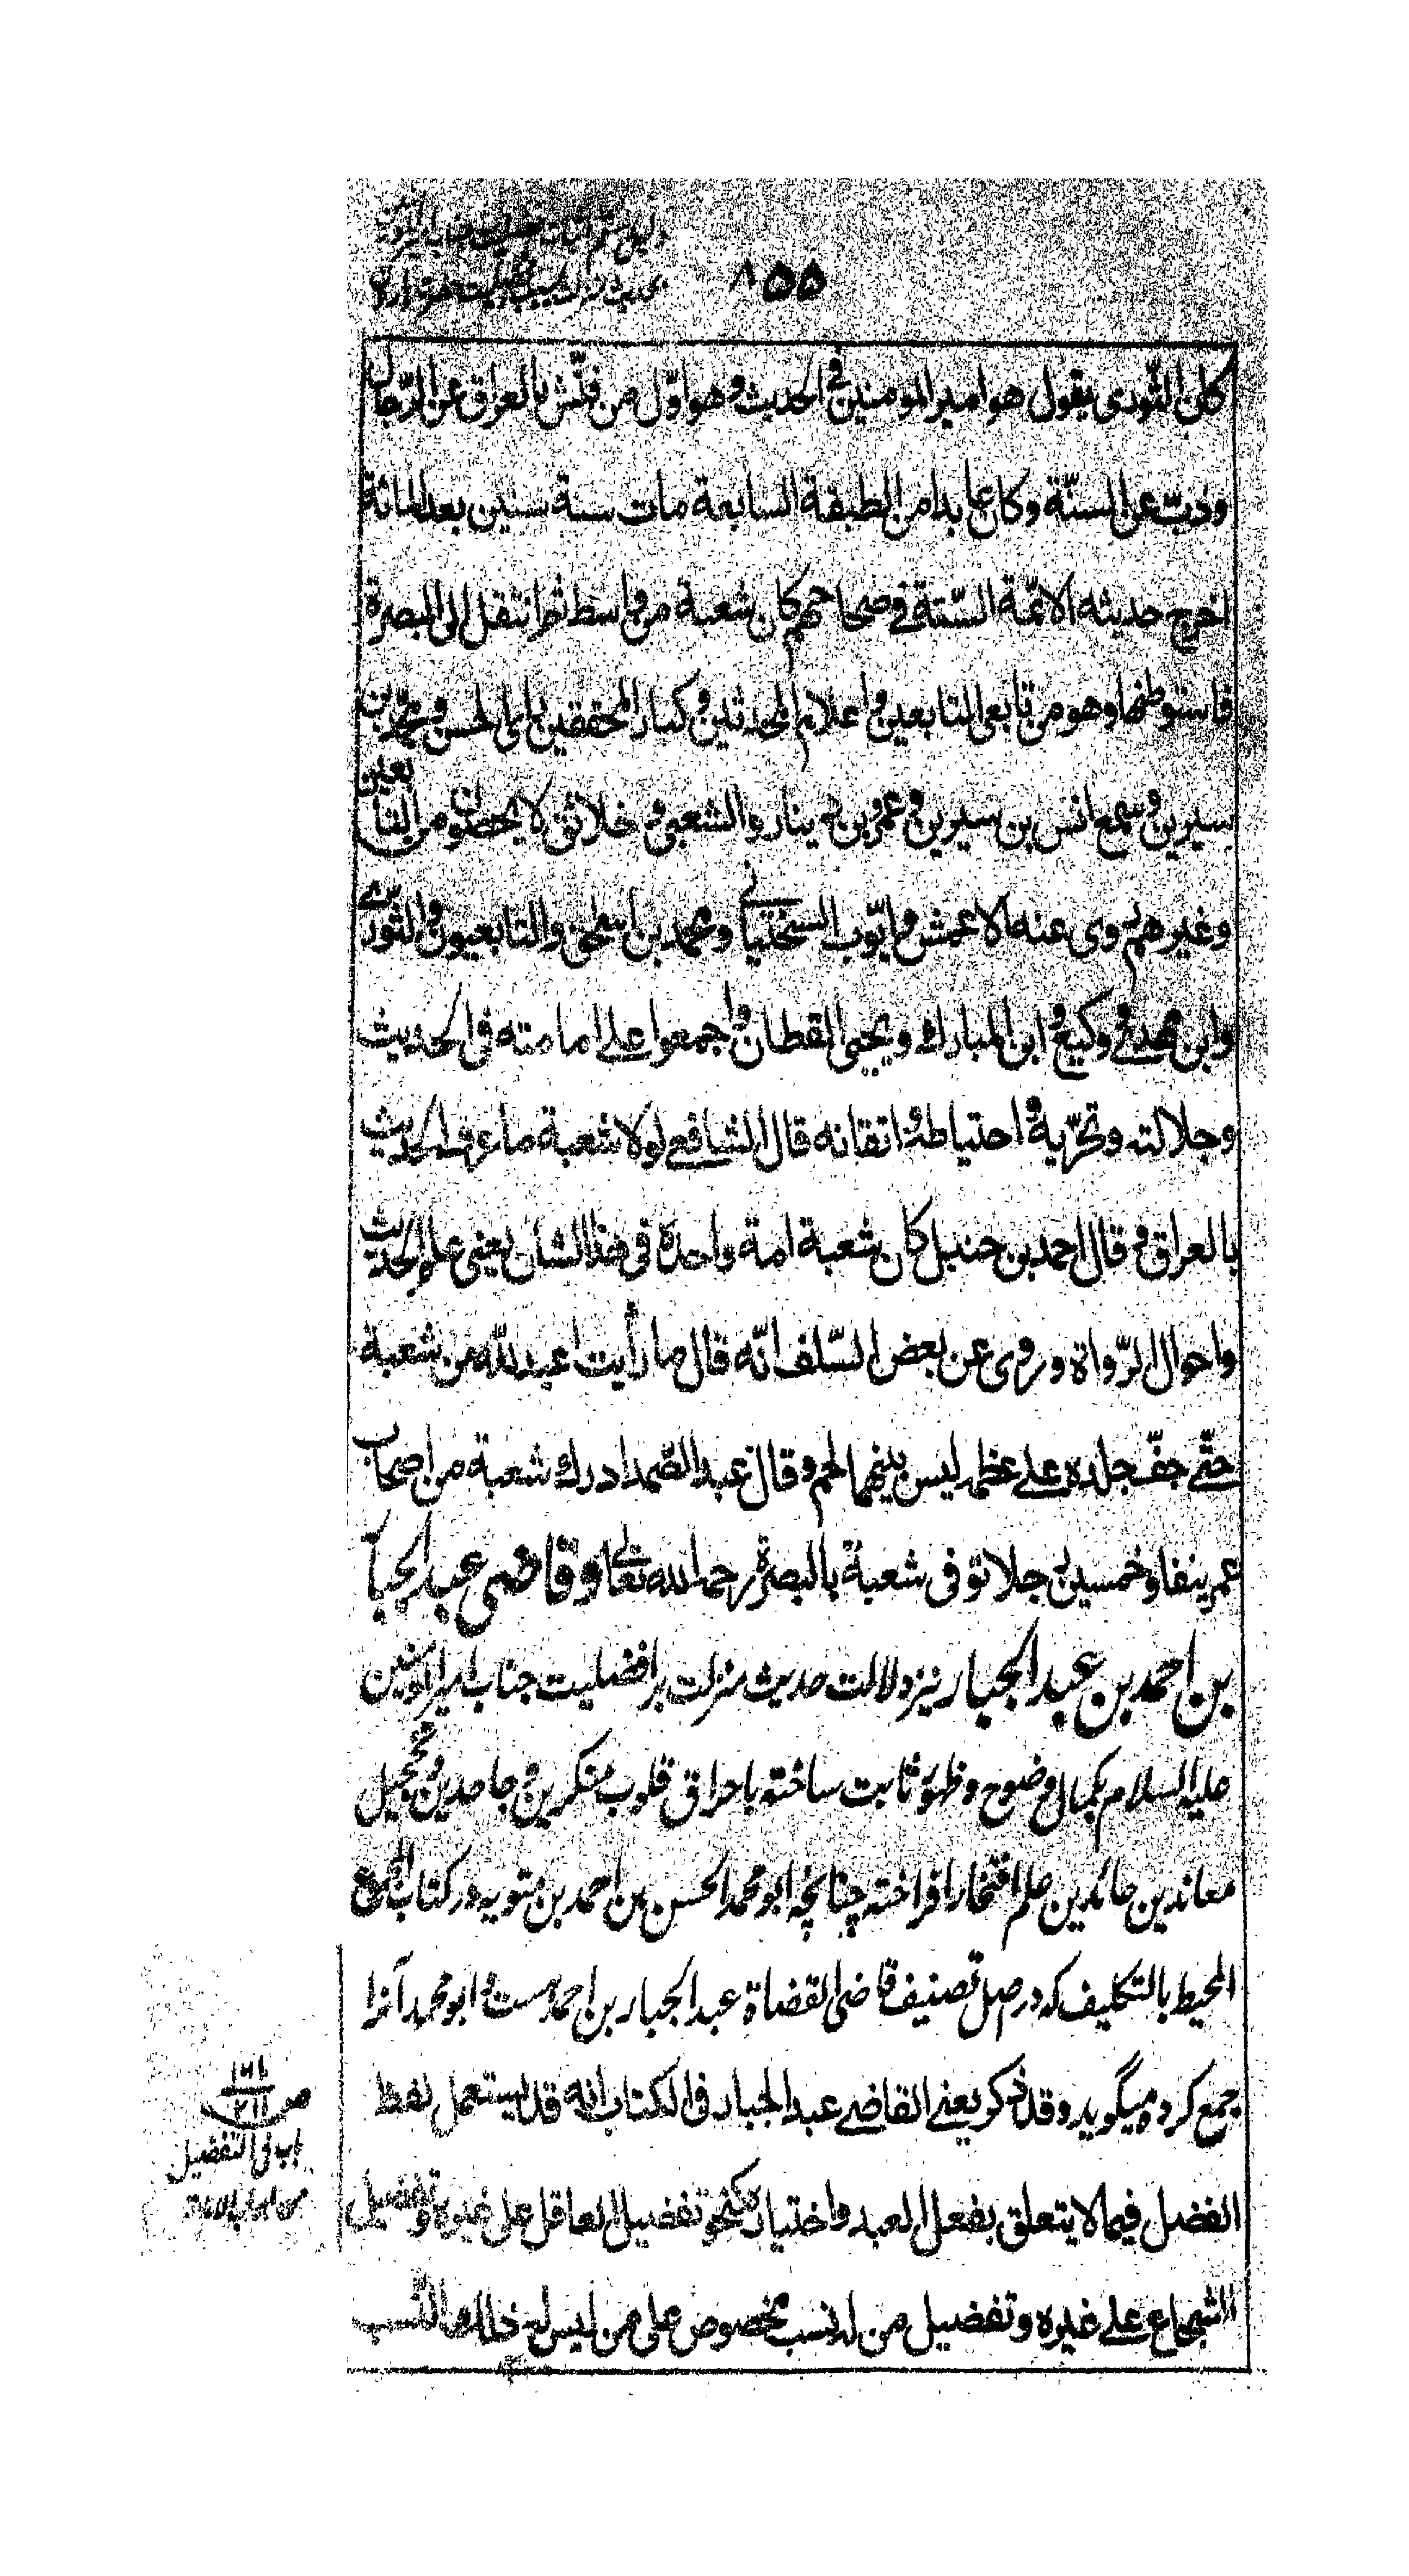 ۸۵۵
كان الثوري يقول هو امير المومنين في الحديث وهو اوّل من فتّش بالعراق عن الرّجال
وذبّ عن السنّة وكان عابدا من الطبقة السابعة مات سنة ستين بعد المائة
اخرج حديثه الائمّة السّتة في صحاحهم كان شعبة من واسط ثم انتقل الى البصرة
فاستوطنها وهو من تابعي التابعين واعلام المحدثين وكبار المحققين راى الحسن ومحمد بن
سيرين وسمع انس بن سيرين وعمرو بن دينار والشعبي وخلائق لا يحصون من التابعين
وغيرهم روى عنه الاعمش وايّوب السختياني ومحمد بن اسحٰق والتابعيون والثوري
وابن مهدي ووكيع وابن المبارك ويحيى القطان واجمعوا على امامته في الحديث
وجلالته وتحرّيه واحتياطه واتقانه قال الشافعي لولا شعبة ما عرف الحديث
بالعراق وقال احمد بن حنبل كان شعبة امة واحدة في هذا الشان يعني علم الحديث
واحوال الرّواة وروى عن بعض السّلف انّه قال ما رأيت اعبد لله من شعبة
حتّى جفّ جلده على عظمه ليس بينهما لحم وقال عبد الصّمد ادرك شعبة من اصحاب
عمر نيفا وخمسين رجلا توفى شعبة بالبصرة رحمه الله تعالى وقاضى عبد الجبار
بن احمد بن عبد الجبار نيز دلالت حديث منزلت بر افضليت جناب امير المومنين
عليه السلام بكمال وضوح وظهور ثابت ساخته باحراق قلوب منكرين وجاحدين وتخجيل
معاندين حائدين علم افتخار افراخته چنانچه ابو محمد الحسن بن احمد بن متويه در كتاب المجموع
المحيط بالتكليف كه در اصل تصنيف قاضى القضاة عبد الجبار بن احمد ست و ابو محمد آنرا
جمع كرده ميگويد وقد ذكر يعني القاضي عبد الجبار في الكتاب انه قد يستعمل لفظ
الفضل فيما لا يتعلق بفعل العبد واختياره كنحو تفضيل العاقل على غيره وتفضيل
الشجاع على غيره وتفضيل من له نسب مخصوص على من ليس له ذلك النسب
باب في التفضيل